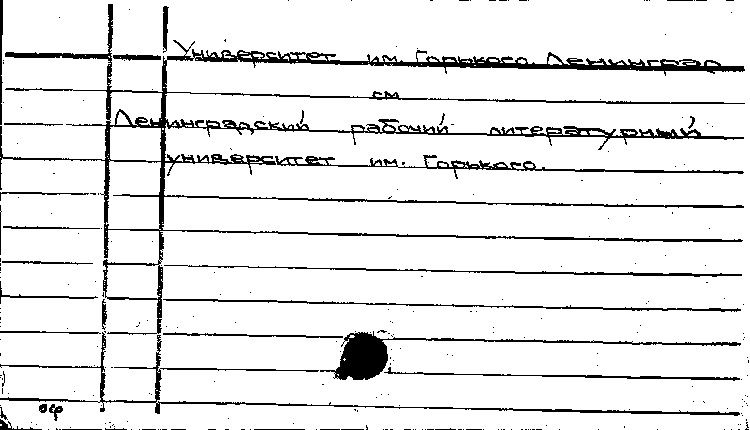 Университет им. Горького. Ленинград
см
Ленинградский рабочий литературный
университет им. Горького.